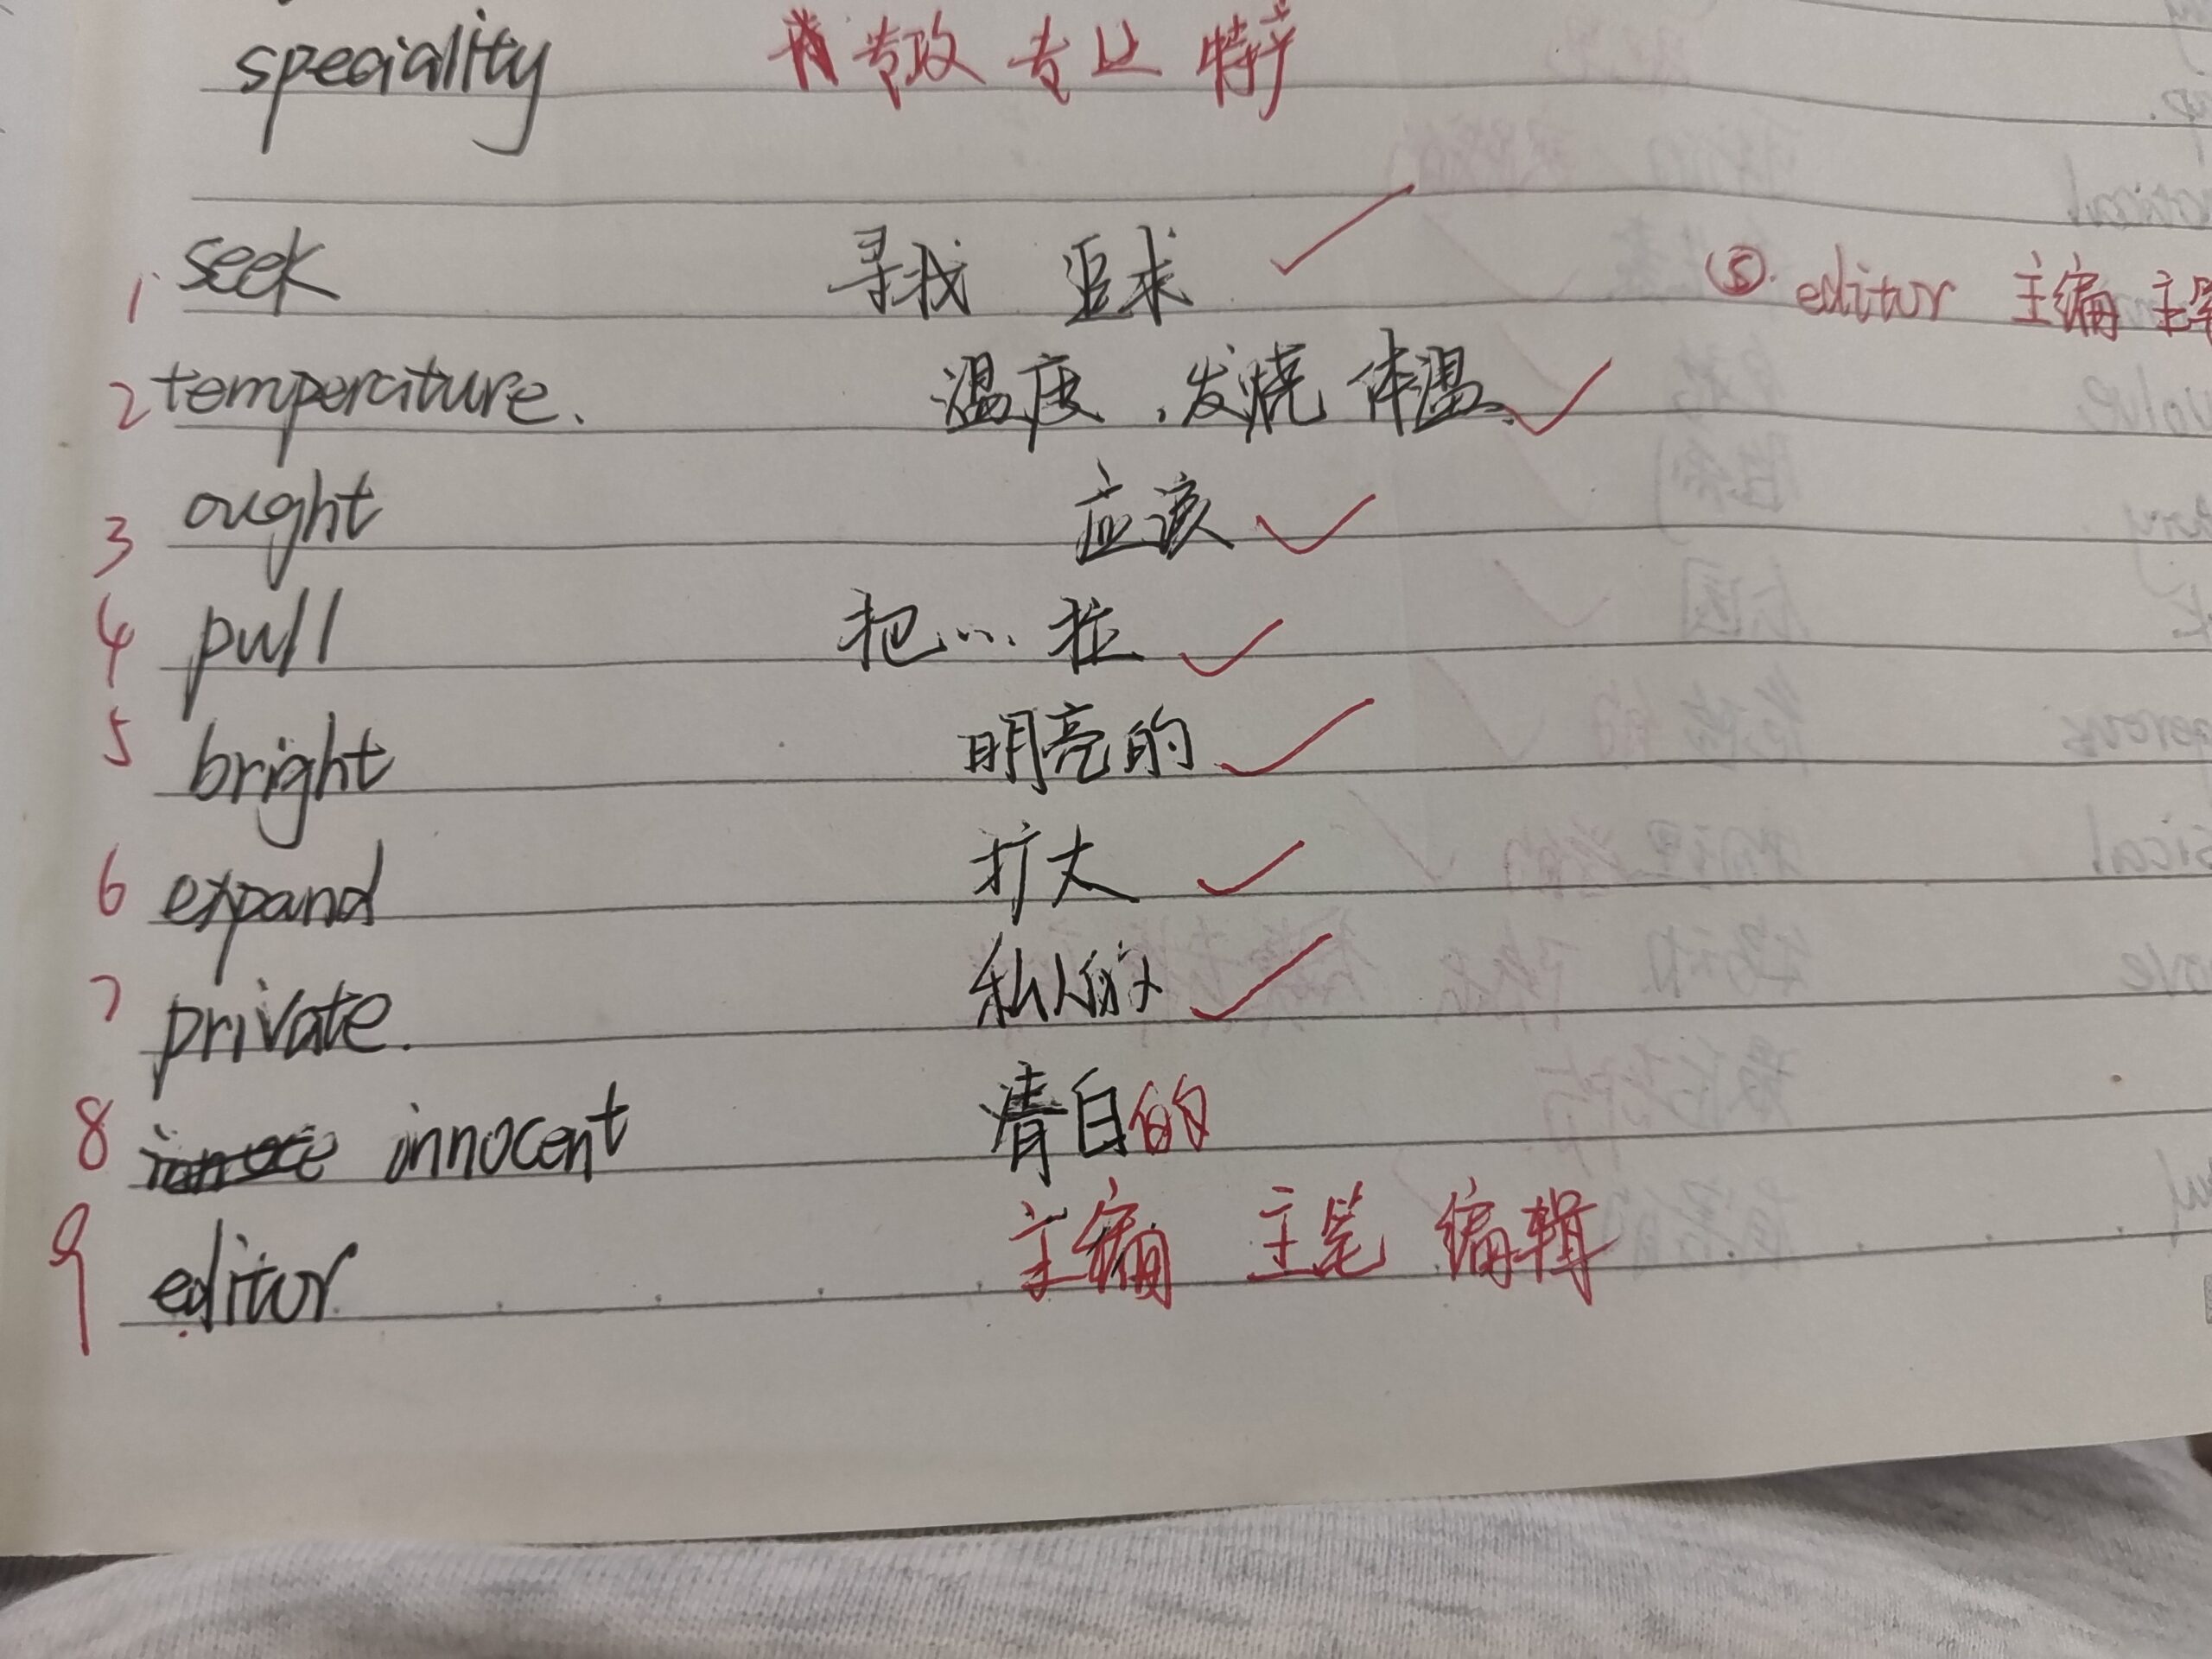 speciality 专攻 专业 特产
1 seek 寻找 追求 ✓
⑤. editor 主编 主笔
2 temperature. 温度,发烧 体温. ✓
3 ought 应该 ✓
4 pull 把... 拉 ✓
5 bright 明亮的 ✓
6 expand 扩大 ✓
7 private. 私人的 ✓
8 innocent 清白的
9 editor 主编 主笔 编辑